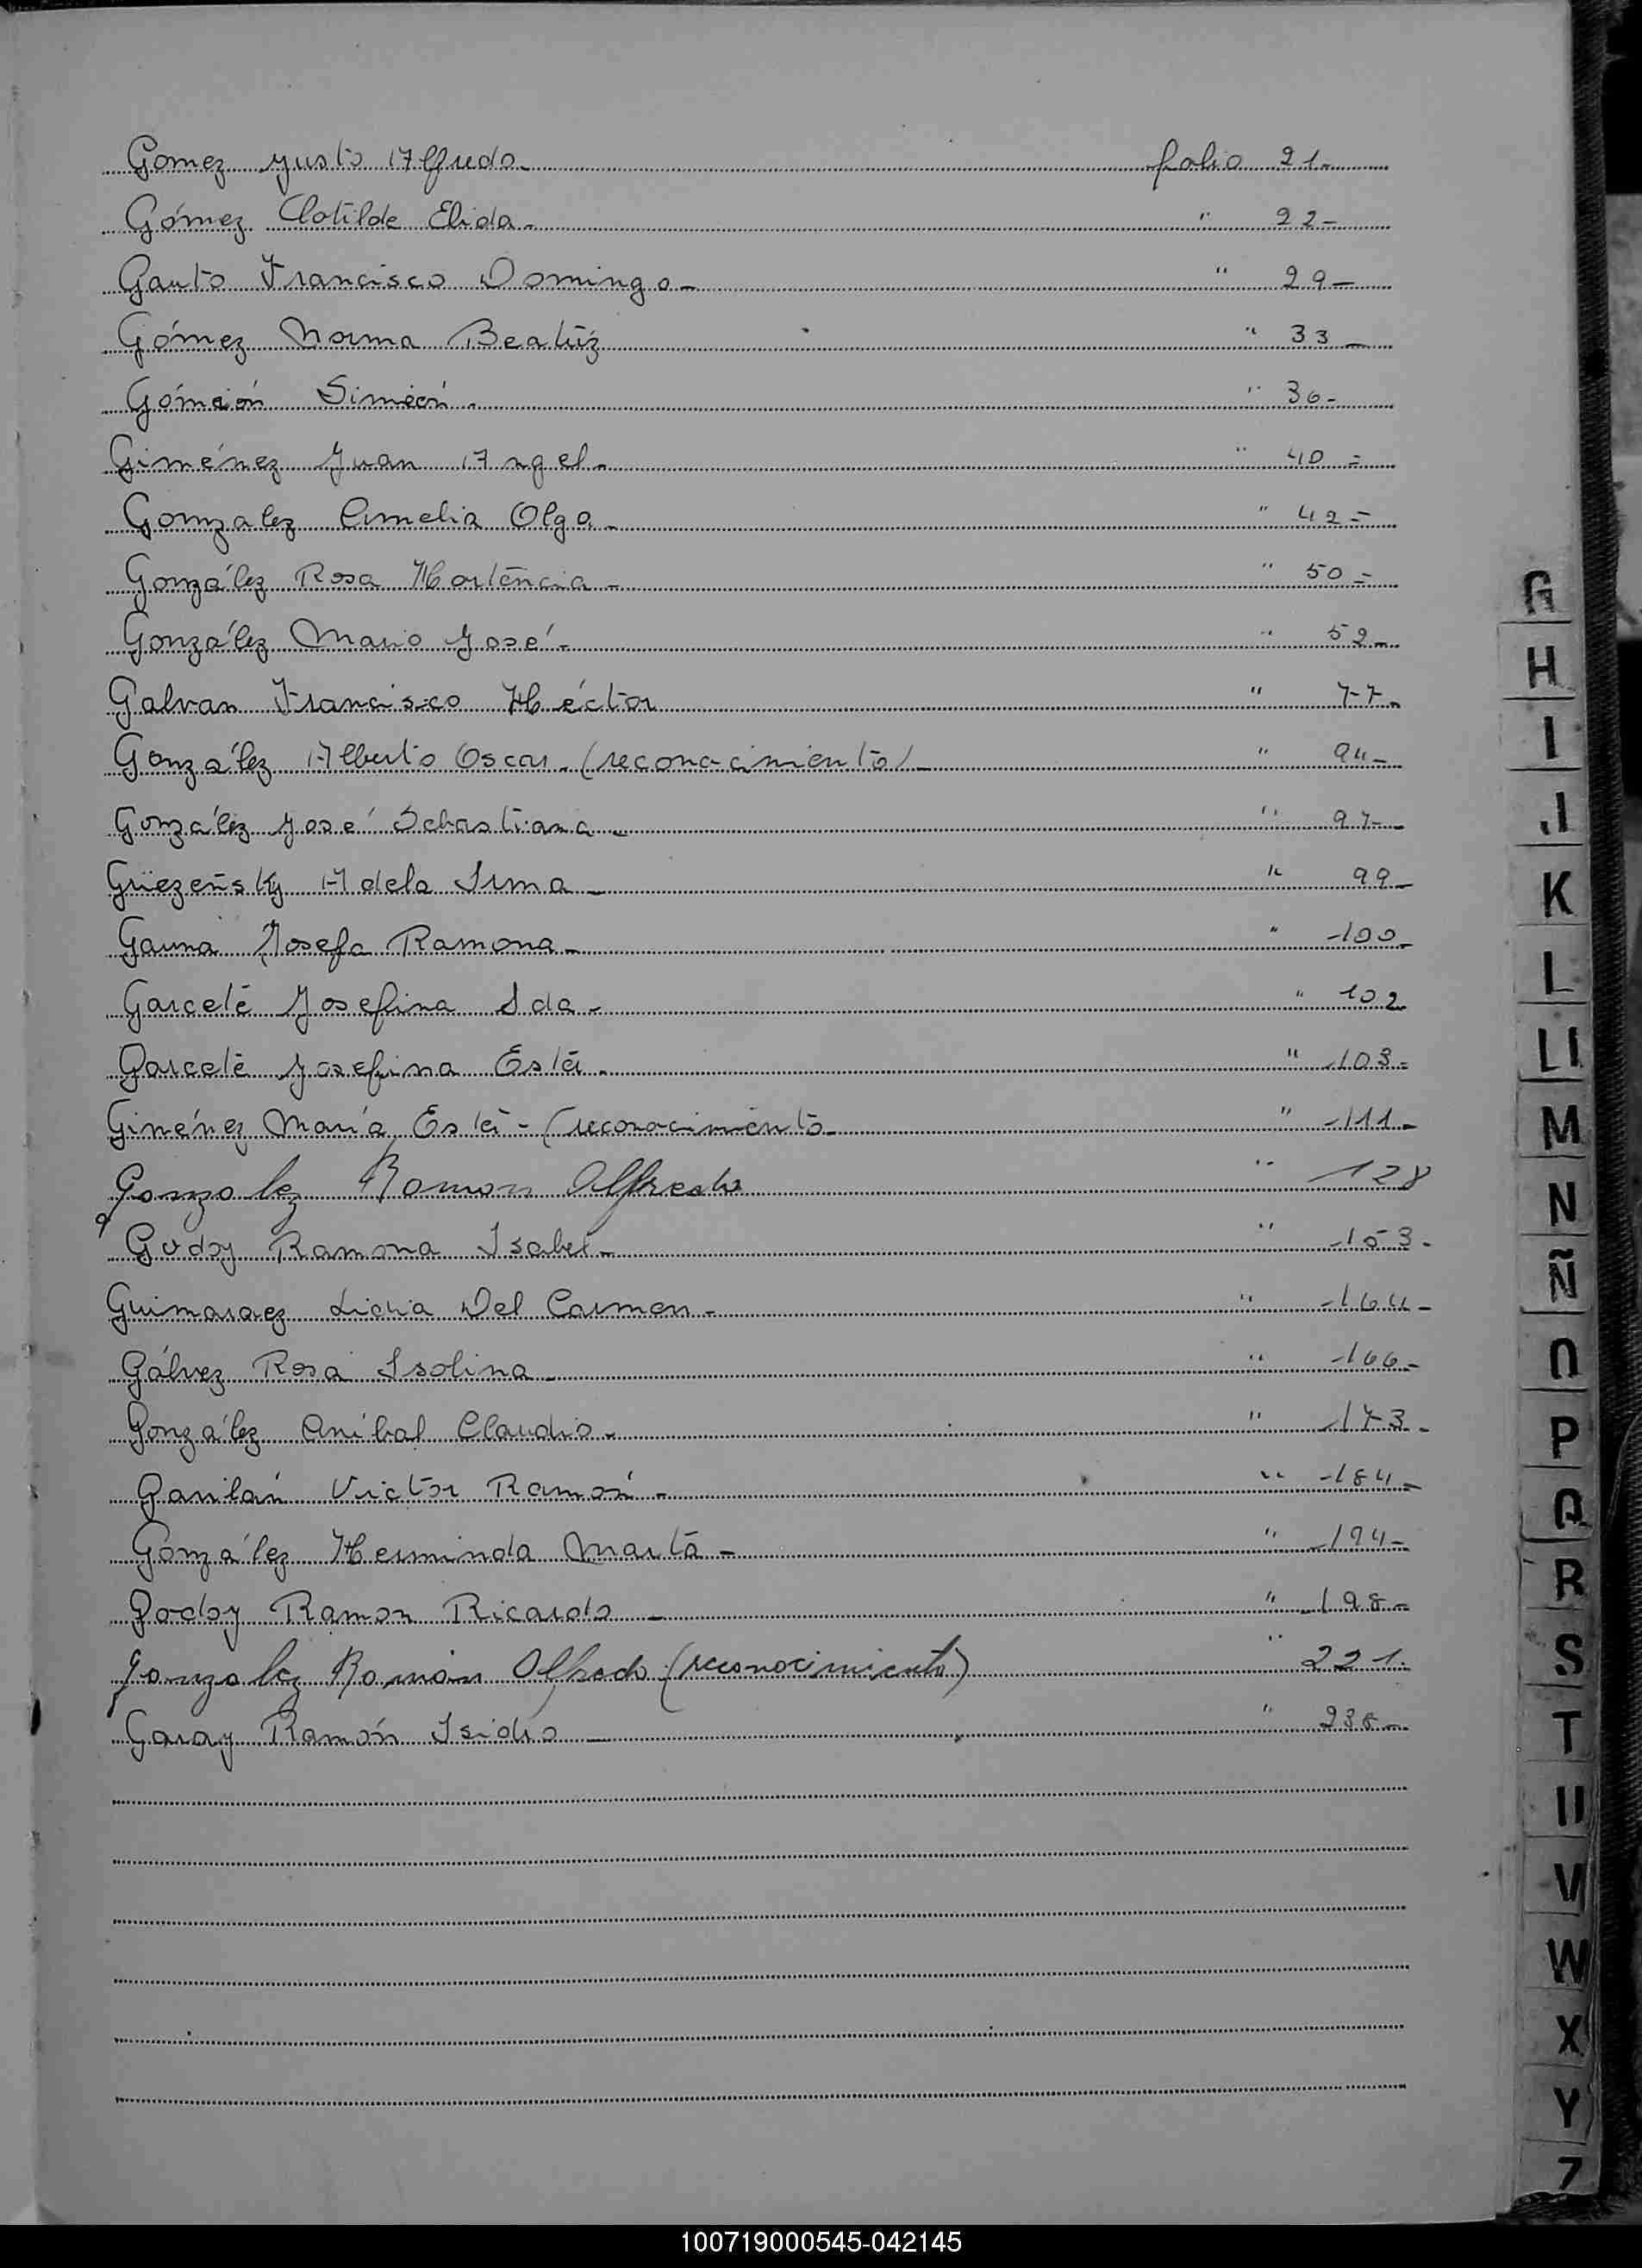 Gomez Justo Alfredo - folio 21-
Gómez Clotilde Elida - " 22-
Gauto Francisco Domingo - " 29-
Gómez Norma Beatriz " 33-
Simeón - " 36-
Giménez Juan Angel - " 40=
Gonzalez Amelia Olga - " 42=
González Rosa Hortencia - " 50=
González Mario José - " 52-
Galvan Francisco Héctor " 77-
González Alberto Oscar - (reconocimiento) - " 94-
González José Sebastiana - " 97-
Adela Irma - " 99-
Gauna Josefa Ramona - " -100-
Garcete Josefina Ida - " 102
Garcete Josefina Ester - " -103-
Giménez María Ester - (reconocimiento - " -111-
Gonzalez Ramon Alfredo " 128
Godoy Ramona Isabel - " -153-
Guimaraez Lidia Del Carmen - " -164-
Gálvez Rosa Isolina - " -166-
González Aníbal Claudio - " -173-
Victor Ramón - " -184-
González Herminda Marta - " -194-
Godoy Ramon Ricardo - " -198-
Gonzalez Ramón Alfredo (reconocimiento) " 221.
Garay Ramón Isidro - "
G
H
I
J
K
L
Ll
M
N
Ñ
O
P
Q
R
S
T
U
V
W
X
Y
Z
100719000545-042145